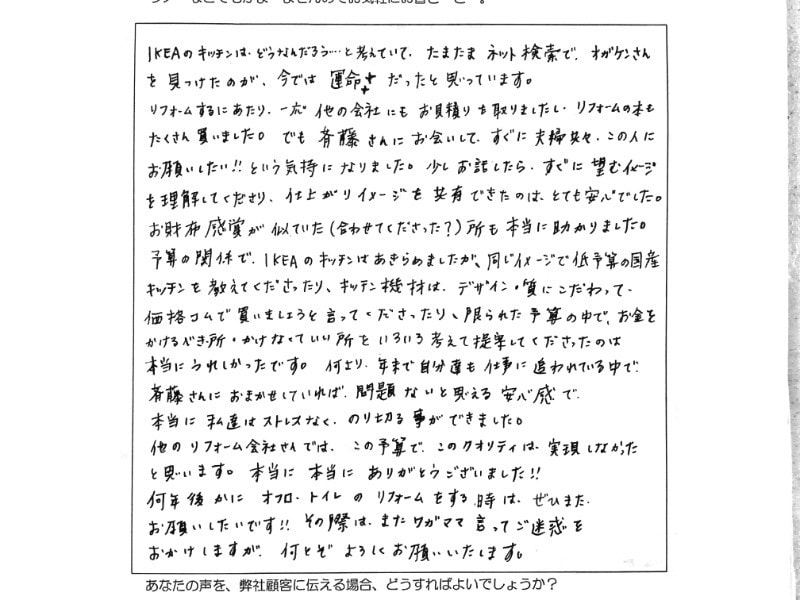 IKEAのキッチンは、どうなんだろう…と考えていて、たまたま ネット検索で、オガケンさん
を見つけたのが、今では 運命 だったと思っています。
リフォームするにあたり、一応 他の会社にも お見積りを取りましたし、リフォームの本も
たくさん 買いました。でも 斉藤さんに お会いして、すぐに 夫婦共々、この人に
お願いしたい!!という気持になりました。少しお話したら、すぐに 望むイメージ
を理解してくださり、仕上がりイメージを 共有できたのは、とても安心でした。
お財布感覚が 似ていた(合わせてくださった?)所も 本当に助かりました。
予算の関係で、IKEAのキッチンはあきらめましたが、同じイメージで低予算の国産
キッチンを教えてくださったり、キッチン機材は、デザイン・質にこだわって、
価格コムで買いましょうと言ってくださったり、限られた予算の中で、お金を
かけるべき所・かけなくていい所を いろいろ考えて提案してくださったのは
本当にうれしかったです。何より、年末で自分達も仕事に追われている中で、
斉藤さんに おまかせしていれば、問題ないと思える 安心感で、
本当に 私達は ストレスなく、のり切る事ができました。
他のリフォーム会社さんでは、この予算で、このクオリティは、実現しなかった
と思います。本当に 本当に ありがとうございました!!
何年後かに オフロ、トイレのリフォームをする時は、ぜひまた、
お願いしたいです!! その際は、またワガママ言ってご迷惑を
おかけしますが、何とぞ よろしくお願いいたします。
あなたの声を、弊社顧客に伝える場合、どうすればよいでしょうか?